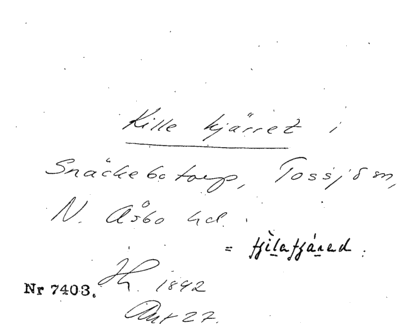 Kille kjärret i
Snäckebotorp, Tossjöm,
N. Åsbo hd.
= fjilafjáred.
Nr 7403. 1842
27.